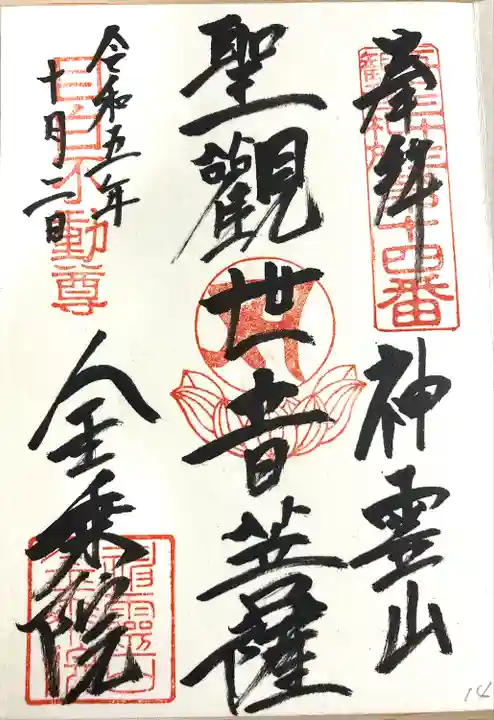 奉拜 神霊山
第十四番
聖觀世音菩薩
令和五年
十月二日
目白不動尊
金乗院
14